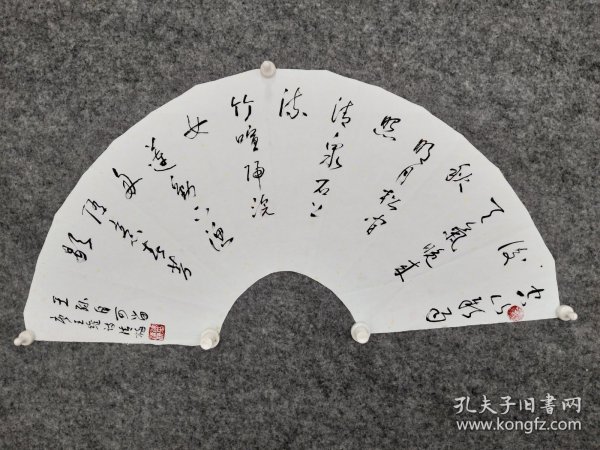 空山新雨
後
天氣晚来
秋
明月松间
照
清泉石上
流
竹喧归浣
女
莲动下渔
舟
随意春芳
歇
王孙自可留
孔夫子旧書网
www.kongfz.com